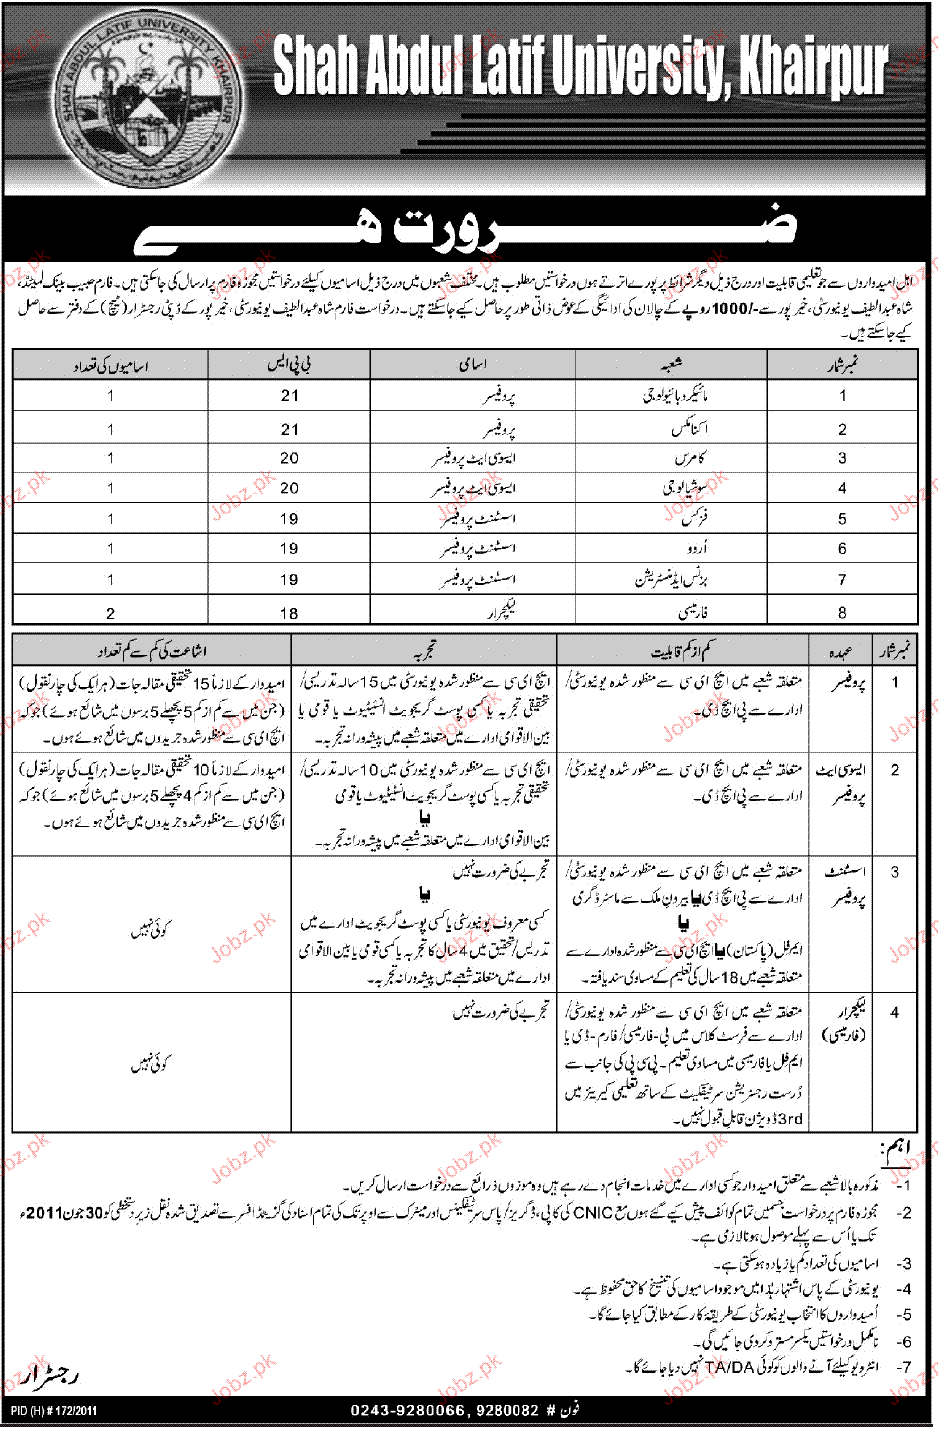 SHAH ABDUL LATIF UNIVERSITY KHAIRPUR
Shah Abdul Latif University, Khairpur
ضرورت ھے
اہل امیدواروں سے جو تعلیمی قابلیت اور درج ذیل دیگر شرائط پر پورے اترتے ہوں درخواستیں مطلوب ہیں۔ مختلف شعبوں میں درج ذیل اسامیوں کیلئے درخواستیں مجوزہ فارم پر ارسال کی جا سکتی ہیں۔ فارم حبیب بینک لمیٹڈ،
شاہ عبداللطیف یونیورسٹی، خیرپور سے -/1000 روپے کے چالان کی ادائیگی کے عوض ذاتی طور پر حاصل کیے جا سکتے ہیں۔ درخواست فارم شاہ عبداللطیف یونیورسٹی، خیرپور کے ڈپٹی رجسٹرار (ٹیچ) کے دفتر سے حاصل
کیے جا سکتے ہیں۔
نمبر شمار شعبہ اسامی بی پی ایس اسامیوں کی تعداد
1 مائیکروبائیولوجی پروفیسر 21 1
2 اکنامکس پروفیسر 21 1
3 کامرس ایسوسی ایٹ پروفیسر 20 1
4 سوشیالوجی ایسوسی ایٹ پروفیسر 20 1
5 فزکس اسسٹنٹ پروفیسر 19 1
6 اُردو اسسٹنٹ پروفیسر 19 1
7 بزنس ایڈمنسٹریشن اسسٹنٹ پروفیسر 19 1
8 فارمیسی لیکچرار 18 2
نمبر شمار عہدہ کم از کم قابلیت تجربہ اشاعت کی کم سے کم تعداد
1 پروفیسر
متعلقہ شعبے میں ایچ ای سی سے منظور شدہ یونیورسٹی/
ادارے سے پی ایچ ڈی۔
ایچ ای سی سے منظور شدہ یونیورسٹی میں 15 سالہ تدریسی/
تحقیقی تجربہ یا کسی پوسٹ گریجویٹ انسٹیٹیوٹ یا قومی یا
بین الاقوامی ادارے میں متعلقہ شعبے میں پیشہ ورانہ تجربہ۔
امیدوار کے لازماً 15 تحقیقی مقالہ جات (ہر ایک کی چار نقول)
(جن میں سے کم از کم 5 پچھلے 5 برسوں میں شائع ہوئے) جو کہ
ایچ ای سی سے منظور شدہ جریدوں میں شائع ہوئے ہوں۔
2 ایسوسی ایٹ
پروفیسر
متعلقہ شعبے میں ایچ ای سی سے منظور شدہ یونیورسٹی/
ادارے سے پی ایچ ڈی۔
ایچ ای سی سے منظور شدہ یونیورسٹی میں 10 سالہ تدریسی/
تحقیقی تجربہ یا کسی پوسٹ گریجویٹ انسٹیٹیوٹ یا قومی
یا
بین الاقوامی ادارے میں متعلقہ شعبے میں پیشہ ورانہ تجربہ۔
امیدوار کے لازماً 10 تحقیقی مقالہ جات (ہر ایک کی چار نقول)
(جن میں سے کم از کم 4 پچھلے 5 برسوں میں شائع ہوئے) جو کہ
ایچ ای سی سے منظور شدہ جریدوں میں شائع ہوئے ہوں۔
3 اسسٹنٹ
پروفیسر
متعلقہ شعبے میں ایچ ای سی سے منظور شدہ یونیورسٹی/
ادارے سے پی ایچ ڈی یا بیرون ملک سے ماسٹر ڈگری
یا
ایم فل (پاکستان) یا ایچ ای سی سے منظور شدہ ادارے سے
متعلقہ شعبے میں 18 سال کی تعلیم کے مساوی سند یافتہ۔
تجربے کی ضرورت نہیں
یا
کسی معروف یونیورسٹی یا کسی پوسٹ گریجویٹ ادارے میں
تدریس/تحقیق میں 4 سال کا تجربہ یا کسی قومی یا بین الاقوامی
ادارے میں متعلقہ شعبے میں پیشہ ورانہ تجربہ۔
کوئی نہیں
4 لیکچرار
(فارمیسی)
متعلقہ شعبے میں ایچ ای سی سے منظور شدہ یونیورسٹی/
ادارے سے فرسٹ کلاس میں بی-فارمیسی/فارم-ڈی یا
ایم فل یا فارمیسی میں مساوی تعلیم۔ پی سی پی کی جانب سے
دُرست رجسٹریشن سرٹیفکیٹ کے ساتھ تعلیمی کیریئر میں
3rd ڈویژن قابلِ قبول نہیں۔
تجربے کی ضرورت نہیں
کوئی نہیں
اہم:
1- مذکورہ بالا شعبے سے متعلق امیدوار جو کسی ادارے میں خدمات انجام دے رہے ہیں وہ موزوں ذرائع سے درخواست ارسال کریں۔
2- مجوزہ فارم پر درخواست جسمیں تمام کوائف پیش کیے گئے ہوں مع CNIC کی کاپی، ڈگریز/پاس سرٹیفکیٹس اور میٹرک سے اوپر تک کی تمام اسناد کی گزیٹڈ افسر سے تصدیق شدہ نقل زیر دستخطی کو 30 جون 2011ء
تک یا اُس سے پہلے موصول ہونا لازمی ہے۔
3- اسامیوں کی تعداد کم یا زیادہ ہو سکتی ہے۔
4- یونیورسٹی کے پاس اشتہار ہٰذا میں موجود اسامیوں کی تنسیخ کا حق محفوظ ہے۔
5- اُمیدواروں کا انتخاب یونیورسٹی کے طریقۂ کار کے مطابق کیا جائے گا۔
6- نامکمل درخواستیں یکسر مسترد کر دی جائیں گی۔
7- انٹرویو کیلئے آنے والوں کو کوئی TA/DA نہیں دیا جائے گا۔
رجسٹرار
PID (H) # 172/2011
فون # 0243-9280066, 9280082
Jobz.pk